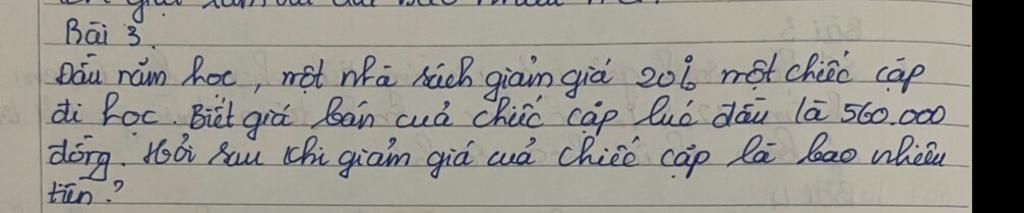 Bài 3.
Đầu năm học, một nhà sách giảm giá 20% một chiếc cặp
đi học. Biết giá bán cuả chiếc cặp lúc đầu là 560.000
đồng. Hỏi sau khi giảm giá cuả chiếc cặp là bao nhiêu
tiền?